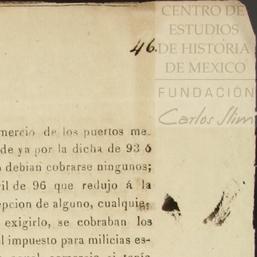 CENTRO DE
ESTUDIOS
DE HISTORIA
DE MEXICO
FUNDACIÓN
Carlos Slim
46.
mercio de los puertos me-
de ya por la dicha de 93 ó
o debian cobrarse ningunos;
ril de 96 que redujo á la
epcion de alguno, cualquie-
exigirlo, se cobraban los
l impuesto para milicias es-